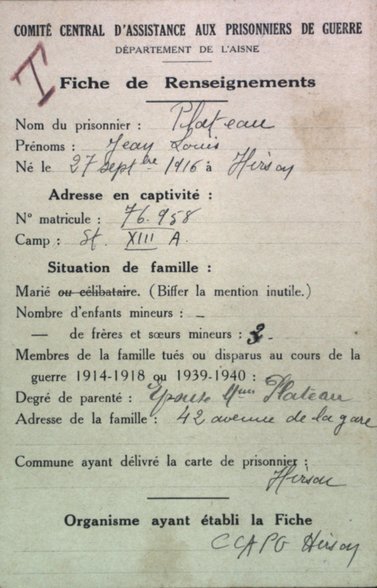 COMITÉ CENTRAL D'ASSISTANCE AUX PRISONNIERS DE GUERRE
DÉPARTEMENT DE L'AISNE
I
Fiche de Renseignements
Nom du prisonnier : Plateau
Prénoms : Jean Louis
Né le 27 septbre 1916 à Hirson
Adresse en captivité :
N° matricule : 76.958
Camp : St. XIII A.
Situation de famille :
Marié ou célibataire. (Biffer la mention inutile.)
Nombre d'enfants mineurs : -
— de frères et sœurs mineurs : 2-
Membres de la famille tués ou disparus au cours de la
guerre 1914-1918 ou 1939-1940 :
Degré de parenté : Epouse Mme Plateau
Adresse de la famille : 42 avenue de la gare
Commune ayant délivré la carte de prisonnier :
Hirson
Organisme ayant établi la Fiche
CCAPG Hirson